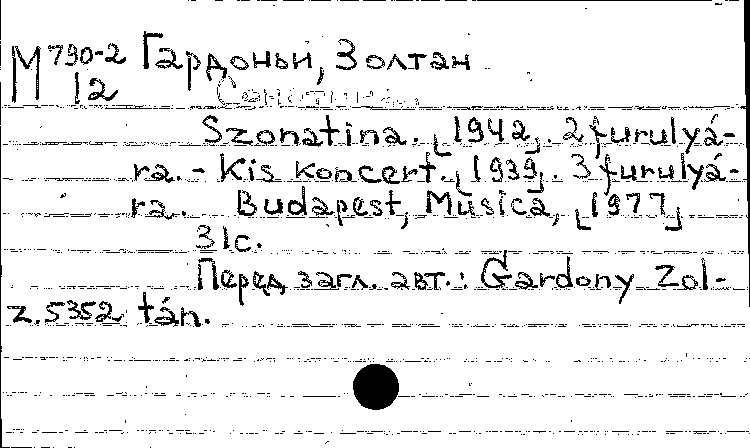 М 790-2 Гардоньи, Золтан
12 Сонатина.
Szonatina. [1942]. 2 furulyá-
ra. - Kis koncert. [1939]. 3 furulyá-
ra. Budapest, Musica, [1977]
31с.
Перед загл. авт.: Gardony Zol-
z.5352 tán.